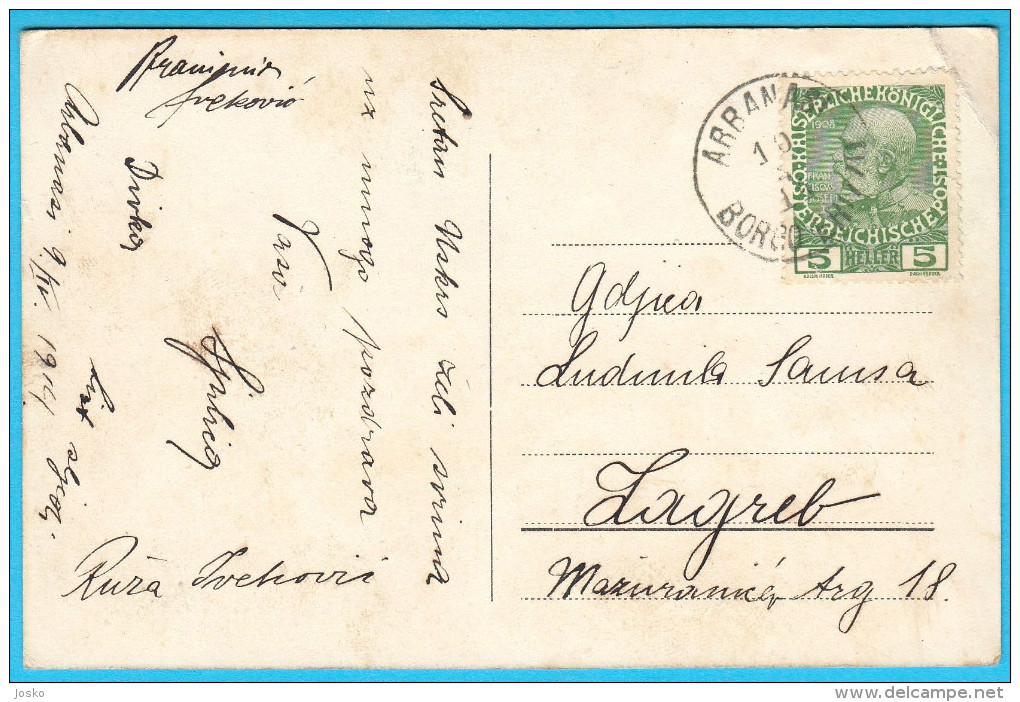 Branimir
Iveković
Divka
Arbanasi 9./IV. 1911.
Sretan Uskrs želi svima
uz mnogo pozdrava
Vaši
List slijedi.
Ruža Iveković
ARBANASI
BORGO ERIZZO
KAISERLICHE KÖNIGLICHE ÖSTERREICHISCHE POST
1908
FRAN
CISCVS
IOSEF I
5 HELLER 5
Gdjica
Ludmila Samsa
Zagreb
Mažuranićev trg 18.
Josko
www.delcampe.net